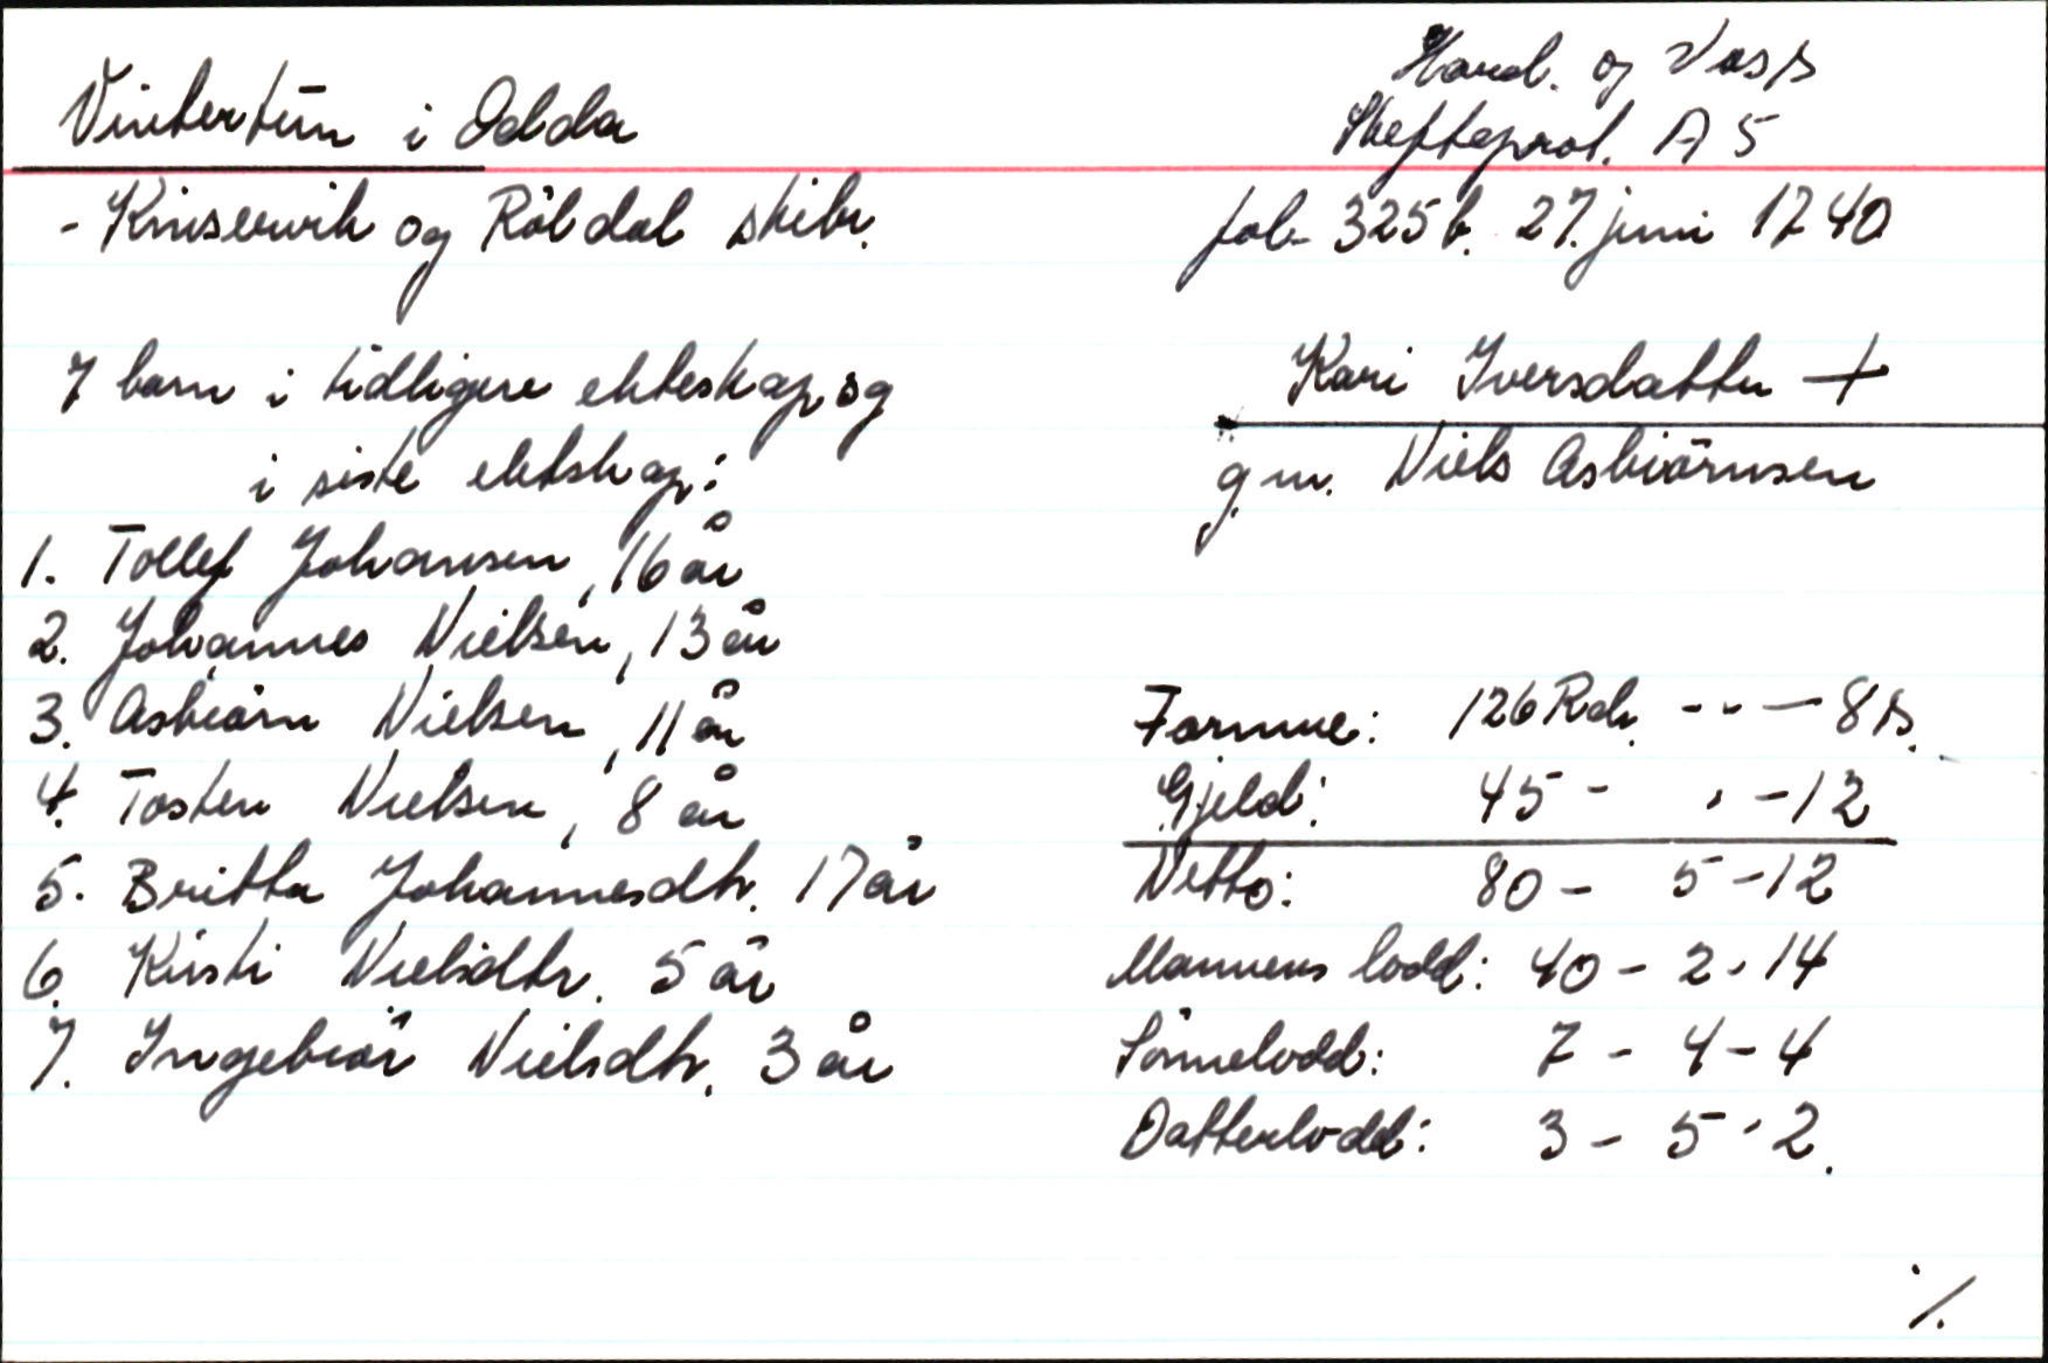 Vintertün i Odda
Hard. og Voss
Skifteprot. A 5
- Kinservik og Röldal skibr.
fol. 325 b. 27. juni 1740
7 barn i tidligere ekteskap og
i siste ektskap:
Kari Iversdatter +
g.m. Niels Asbiörnsen
1. Tollef Johansen, 16 år
2. Johannes Nielsen, 13 år
3. Asbiörn Nielsen, 11 år
4. Tosten Nielsen, 8 år
5. Britta Johannesdtr. 17 år
6. Kirsti Nielsdtr. 5 år
7. Ingebiör Nielsdtr. 3 år
Formue: 126 Rdr. - - - 8 s.
Gjeld: 45 - . - 12
Netto: 80 - 5 - 12
Mannens lodd: 40 - 2 - 14
Sönnelodd: 7 - 4 - 4
Datterlodd: 3 - 5 - 2.
./.